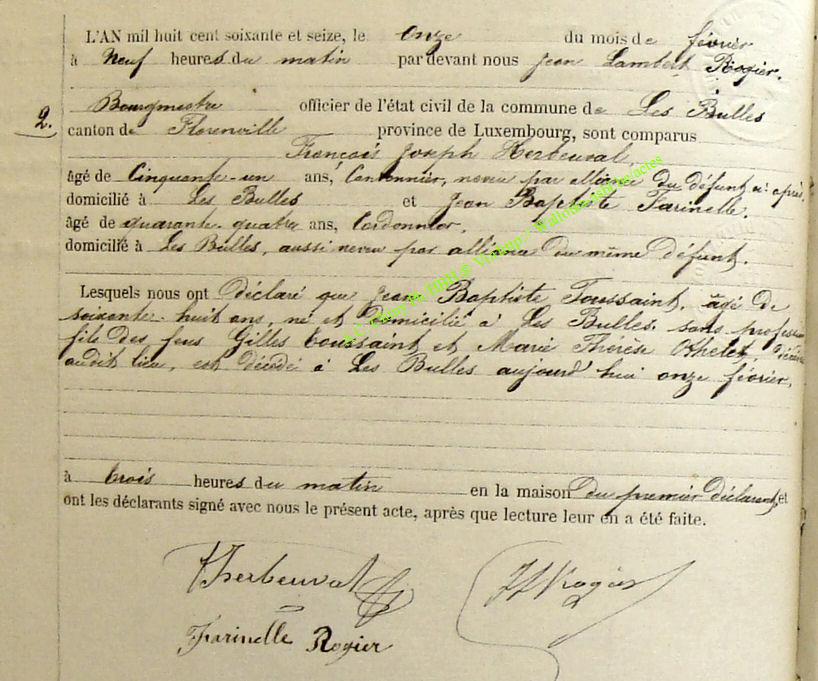 L'AN mil huit cent soixante et seize, le Onze du mois de février
à Neuf heures du matin par devant nous Jean Lambert Rogier.
Bourgmestre officier de l'état civil de la commune de Les Bulles
2.
canton de Florenville province de Luxembourg, sont comparus
François Joseph Herbeuval
âgé de Cinquante-un ans, Cordonnier, neveu par alliance du défunt ci après,
domicilié à Les Bulles et Jean Baptiste Farinelle.
âgé de quarante-quatre ans, Cordonnier,
domicilié à Les Bulles, aussi neveu par alliance du même défunt.
Lesquels nous ont déclaré que Jean Baptiste Toussaint, âgé de
soixante-huit ans, né et domicilié à Les Bulles. sans profession
fils des feus Gilles Toussaint et Marie Thérèse Othelet,
audit lieu, est décédé à Les Bulles aujourd'hui onze février,
à trois heures du matin en la maison du premier déclarant, et
ont les déclarants signé avec nous le présent acte, après que lecture leur en a été faite.
Herbeuval JLRogier
Farinelle Rogier